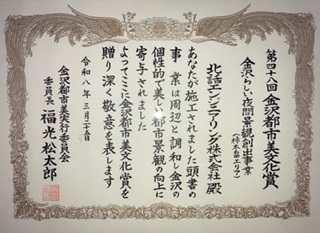 第四十八回 金沢都市美文化賞
金沢らしい夜間景観創出事業
(橋本町エリア)
北話エンジニアリング株式会社 殿
あなたが施工されました頭書の
事業は周辺と調和し金沢の
個性的で美しい都市景観の向上に
寄与されました
よってここに金沢都市美文化賞を
贈り深く敬意を表します
令和八年三月二十五日
金沢都市美実行委員会
委員長 福光松太郎